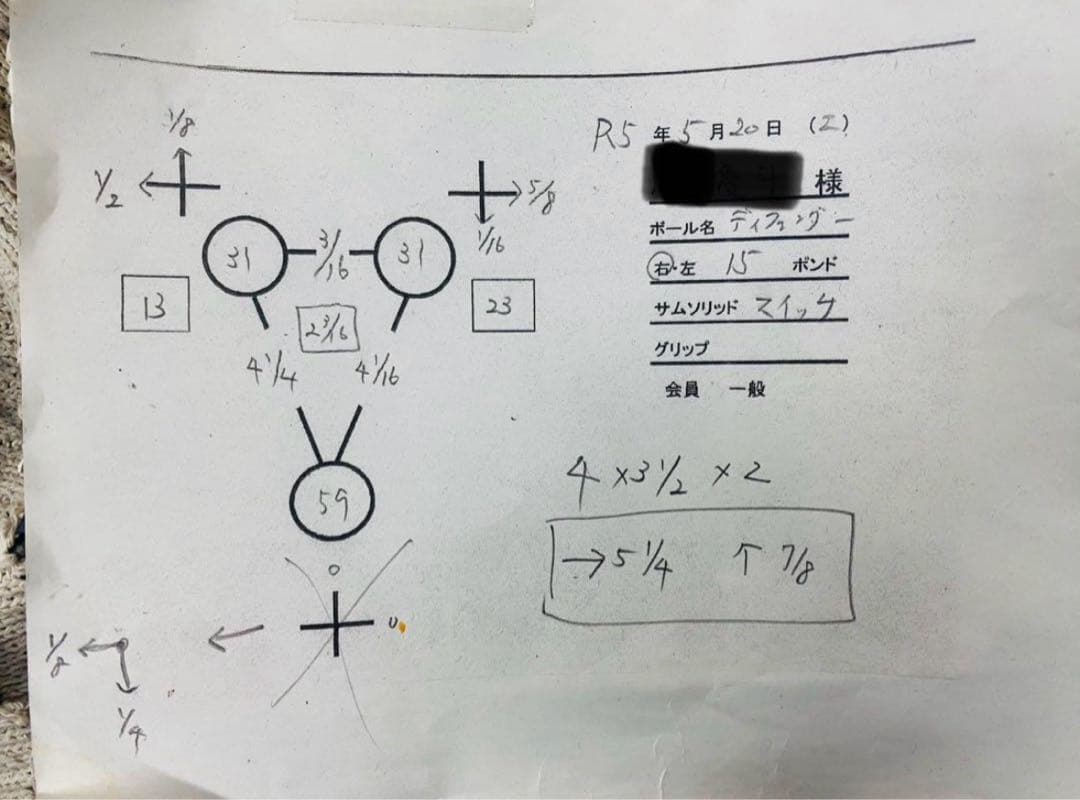 R5 年 5 月 20 日 (工)
様
ボール名 ディフェンダー
右・左 15 ポンド
サムソリッド スイッチ
グリップ
会員 一般
1/8
1/2
5/8
1/16
31 3/16 31
13 2 3/16 23
4 1/4 4 1/16
59
0
0
1/4
4 × 3 1/2 × 2
→ 5 1/4 ↑ 7/8